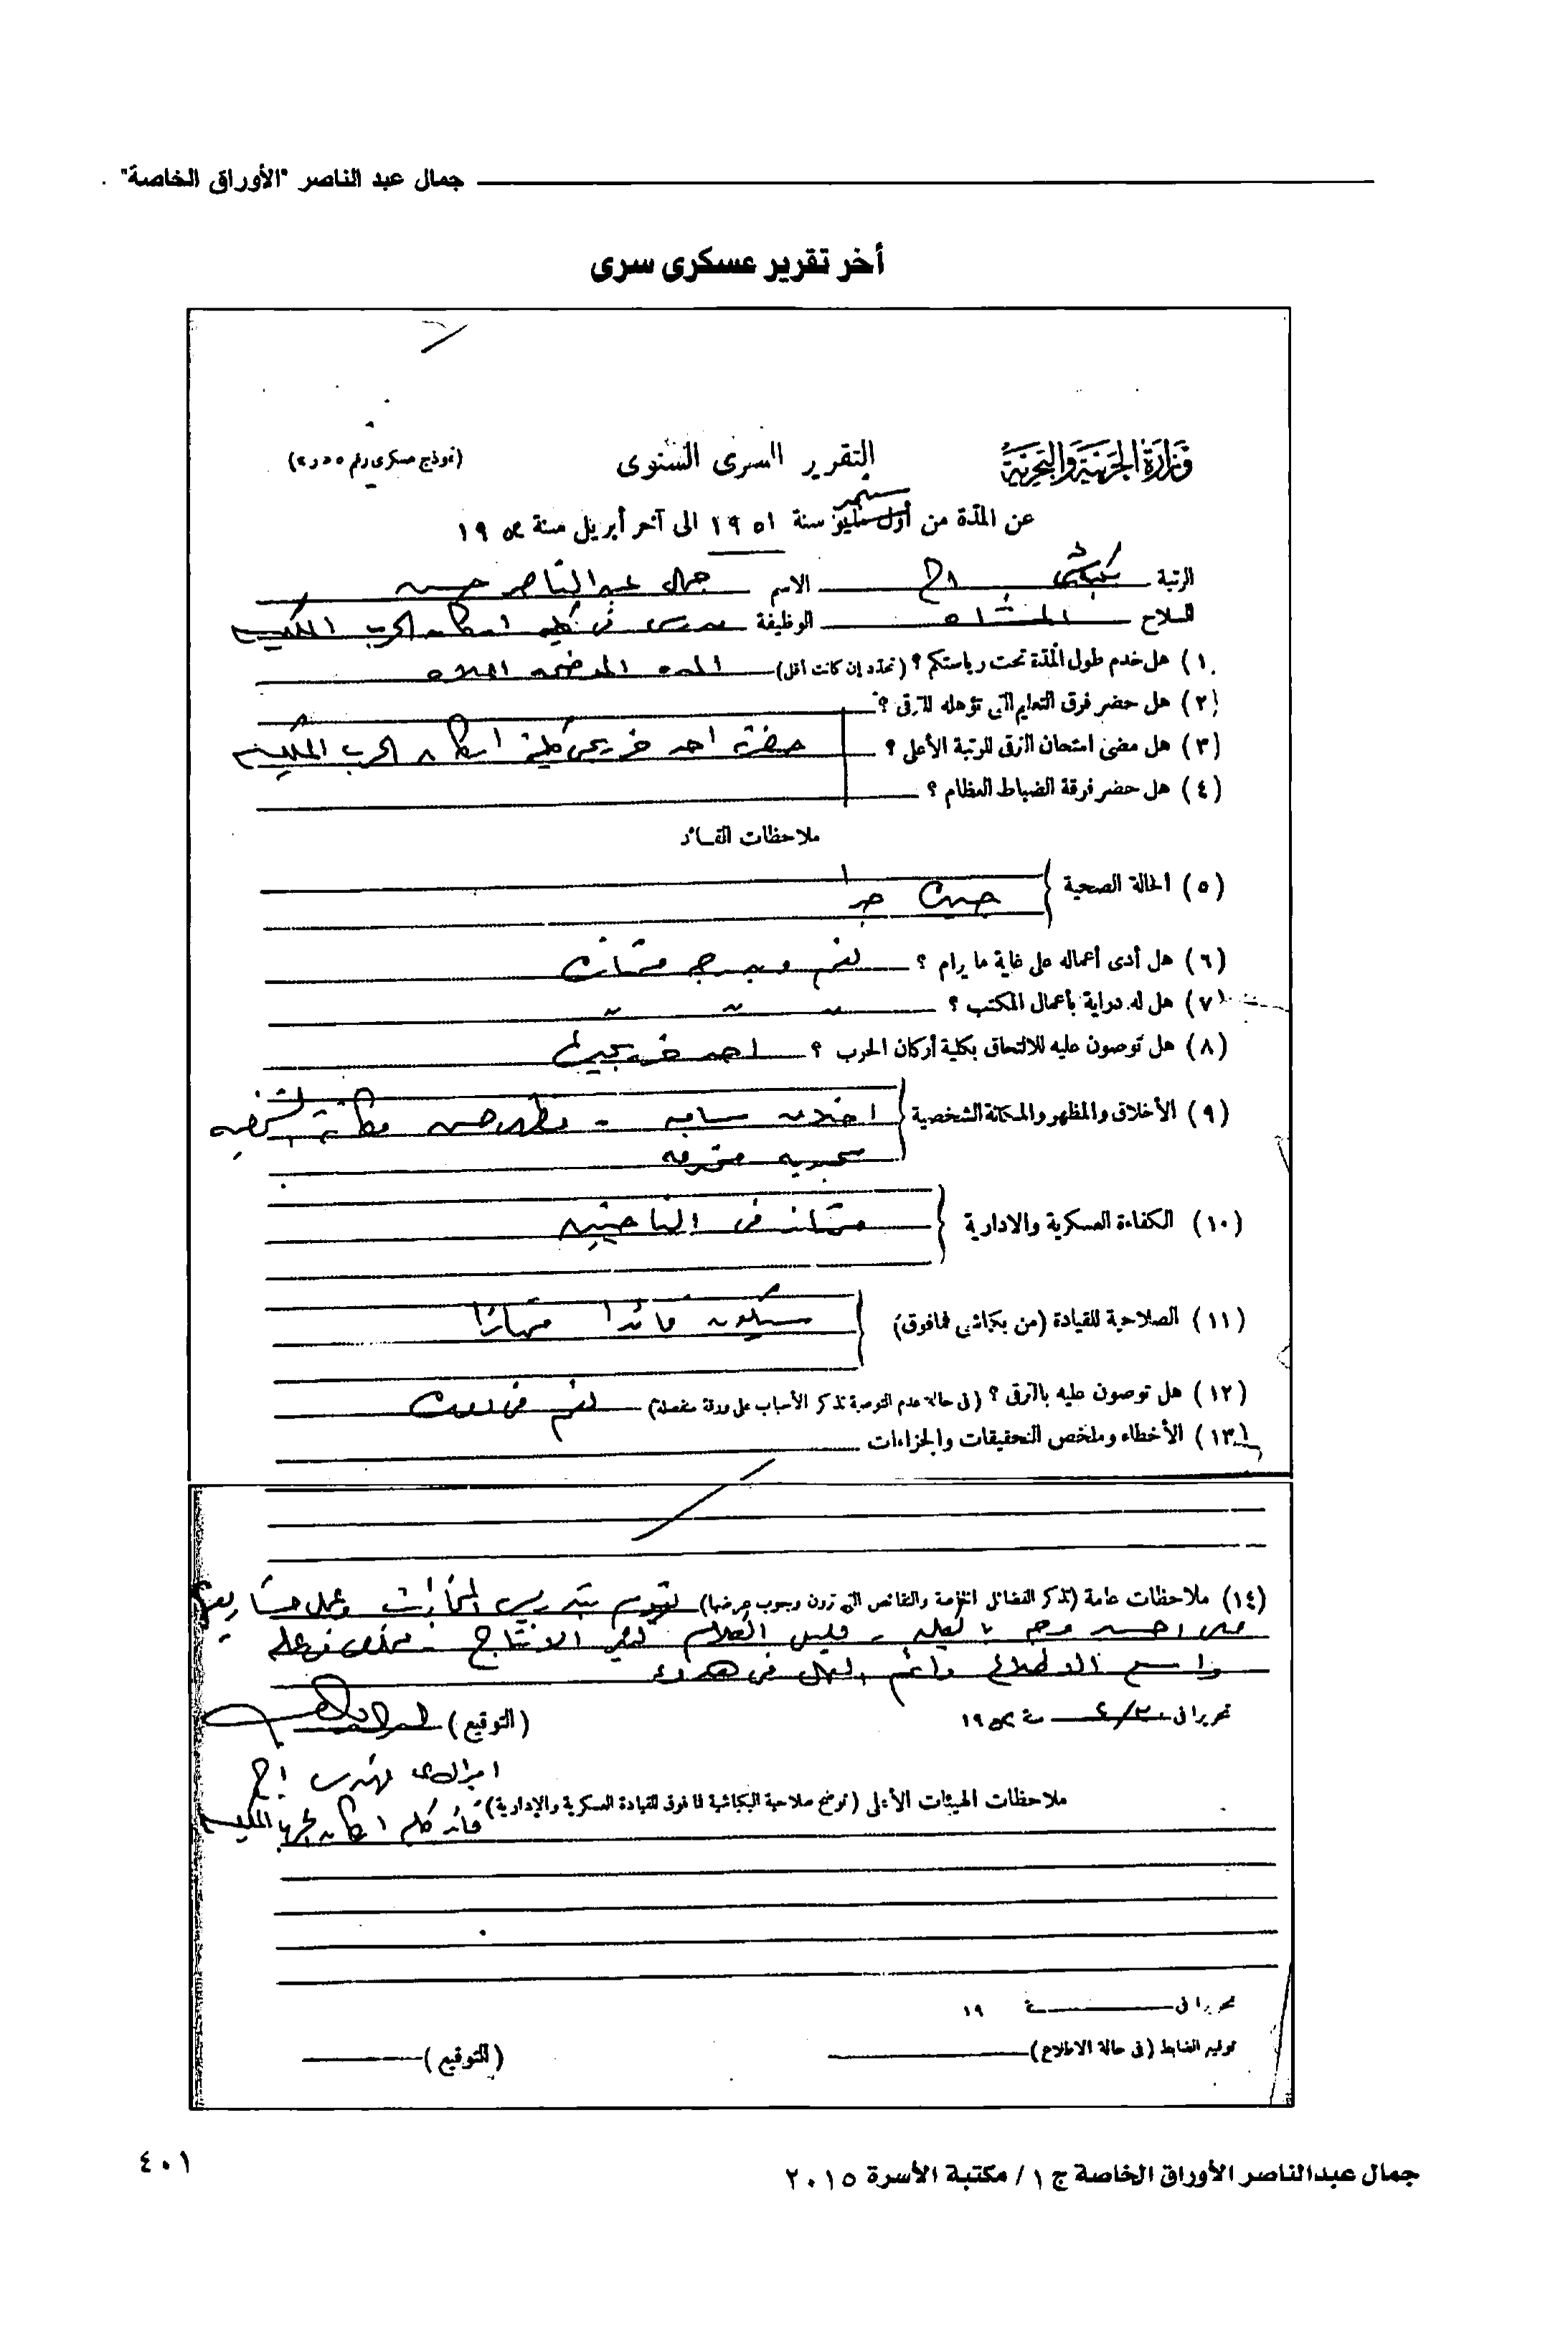 جمال عبد الناصر "الأوراق الخاصة"
أخر تقرير عسكرى سرى
وزارة الحربية والبحرية
التقرير السرى السنوى
(نموذج عسكرى رقم
عن المدة من أول سبتمبر سنة ١٩٥١ الى آخر أبريل سنة ١٩٥٢
الرتبة بكباشى أ ح الاسم جمال عبد الناصر حسين
السلاح المشاه الوظيفة مدرس فى كلية اركان الحرب الملكية
(١) هل خدم طول المدة تحت رياستكم ؟ (تحدد إن كانت أقل) المده الموضحه اعلاه
(٢) هل حضر فرق التعليم التى تؤهله للترقى ؟
(٣) هل مضى امتحان الترقى للرتبة الأعلى ؟ حضرته احد خريجى كلية اركان الحرب الملكية
(٤) هل حضر فرقة الضباط العظام ؟
ملاحظات القائد
(٥) الحالة الصحية جيدة جدا
(٦) هل أدى أعماله على غاية ما يرام ؟ نعم وبدرجة ممتازة
(٧) هل له دراية بأعمال المكتب ؟ " " "
(٨) هل توصون عليه للالتحاق بكلية أركان الحرب ؟ احد خريجيها
(٩) الأخلاق والمظهر والمكانة الشخصية اخلاق ساميه - مظهر حسن مكانته الشخصيه
محترمه
(١٠) الكفاءة العسكرية والادارية ممتاز فى الناحيتين
(١١) الصلاحية للقيادة (من بكباشى فما فوق) سيكون قائدا ممتازا
(١٢) هل توصون عليه بالترقى ؟ (فى حالة عدم التوصية تذكر الأسباب على ورقة منفصلة) نعم فى دوره
(١٣) الأخطاء وملخص التحقيقات والجزاءات
(١٤) ملاحظات عامة (تذكر الفضائل الخاصة والنقائص التى ترون وجوب عرضها) يقوم بتدريس المخابرات وعمل مشاريعها
على احسن وجه بالكلية - قليس الكلام كثير الانتاج - مخلص فى عمله
واسع الاطلاع دائم العمل فى هدوء
تحريرا فى ٣٠/٤ سنة ١٩٥٢
(التوقيع)
اميرالاى مهندس أ ح
قائد كلية اركان الحرب الملكية
ملاحظات الهيئات الأعلى (توضح صلاحية البكباشية فما فوق للقيادة العسكرية والإدارية)
تحريرا فى سنة ١٩
توقيع الضابط (فى حالة الاطلاع)
(التوقيع)
جمال عبدالناصر الأوراق الخاصة ج ١ / مكتبة الأسرة ٢٠١٥
٤٠١